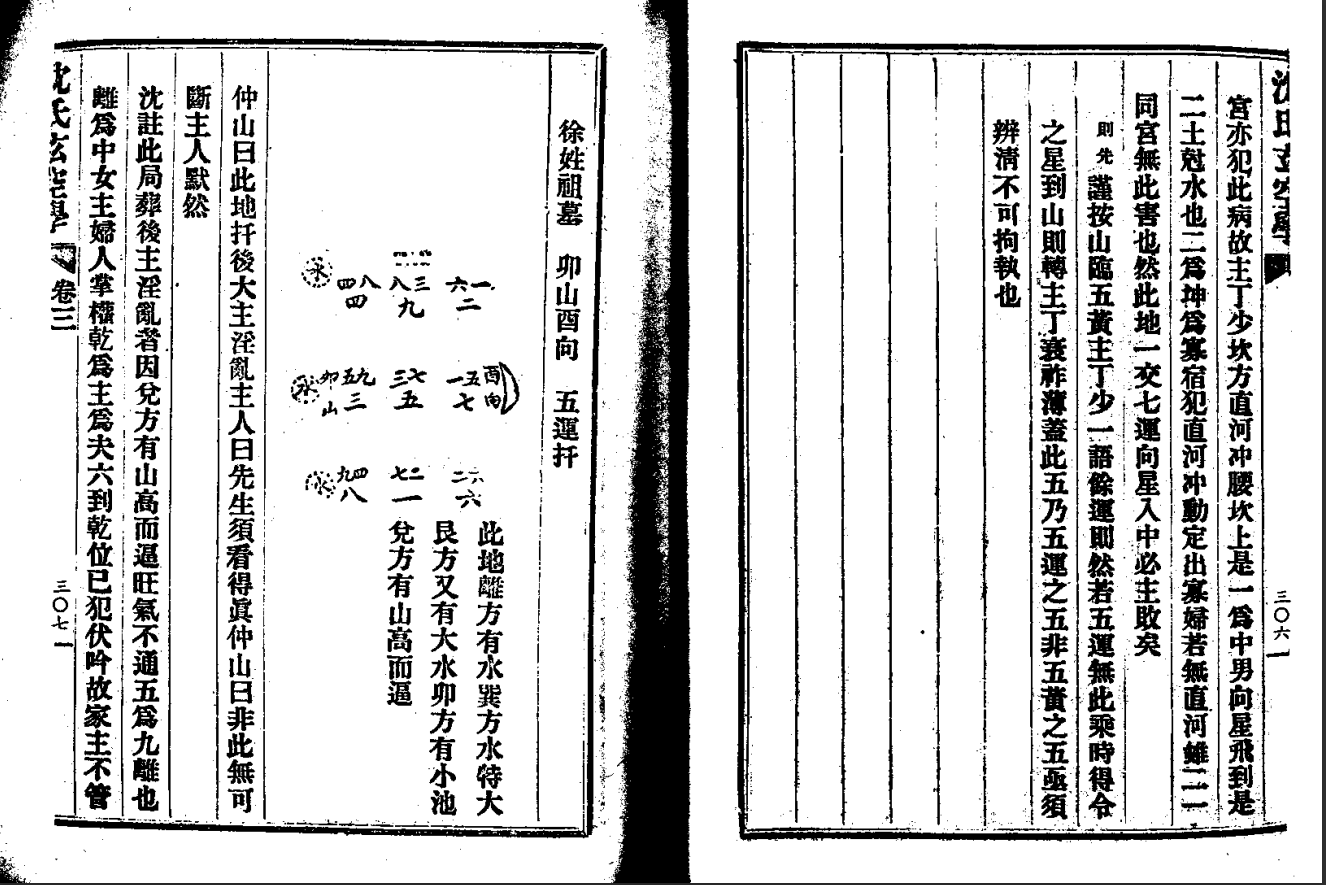 沈氏玄空學
宮亦犯此病故主丁少坎方直河冲腰坎上是一爲中男向星飛到是
二土尅水也二爲坤爲寡宿犯直河冲動定出寡婦若無直河雖二一
同宮無此害也然此地一交七運向星入中必主敗矣
則先 謹按山臨五黃主丁少一語餘運則然若五運無此乘時得令
之星到山則轉主丁衰祚薄蓋此五乃五運之五非五黃之五亟須
辨清不可拘執也
三〇六
徐姓祖墓 卯山酉向 五運扦
一六 二
三八 九
八四 四
水
酉向
五一 七
七三 五
九五 三
卯山
水
二 六
二七 一
四九 八
水
此地離方有水巽方水特大
艮方又有大水卯方有小池
兌方有山高而逼
仲山曰此地扦後大主淫亂主人曰先生須看得眞仲山曰非此無可
斷主人默然
沈註此局葬後主淫亂者因兌方有山高而逼旺氣不通五爲九離也
離爲中女主婦人掌權乾爲主爲夫六到乾位已犯伏吟故家主不管
沈氏玄空學
卷三
三〇七